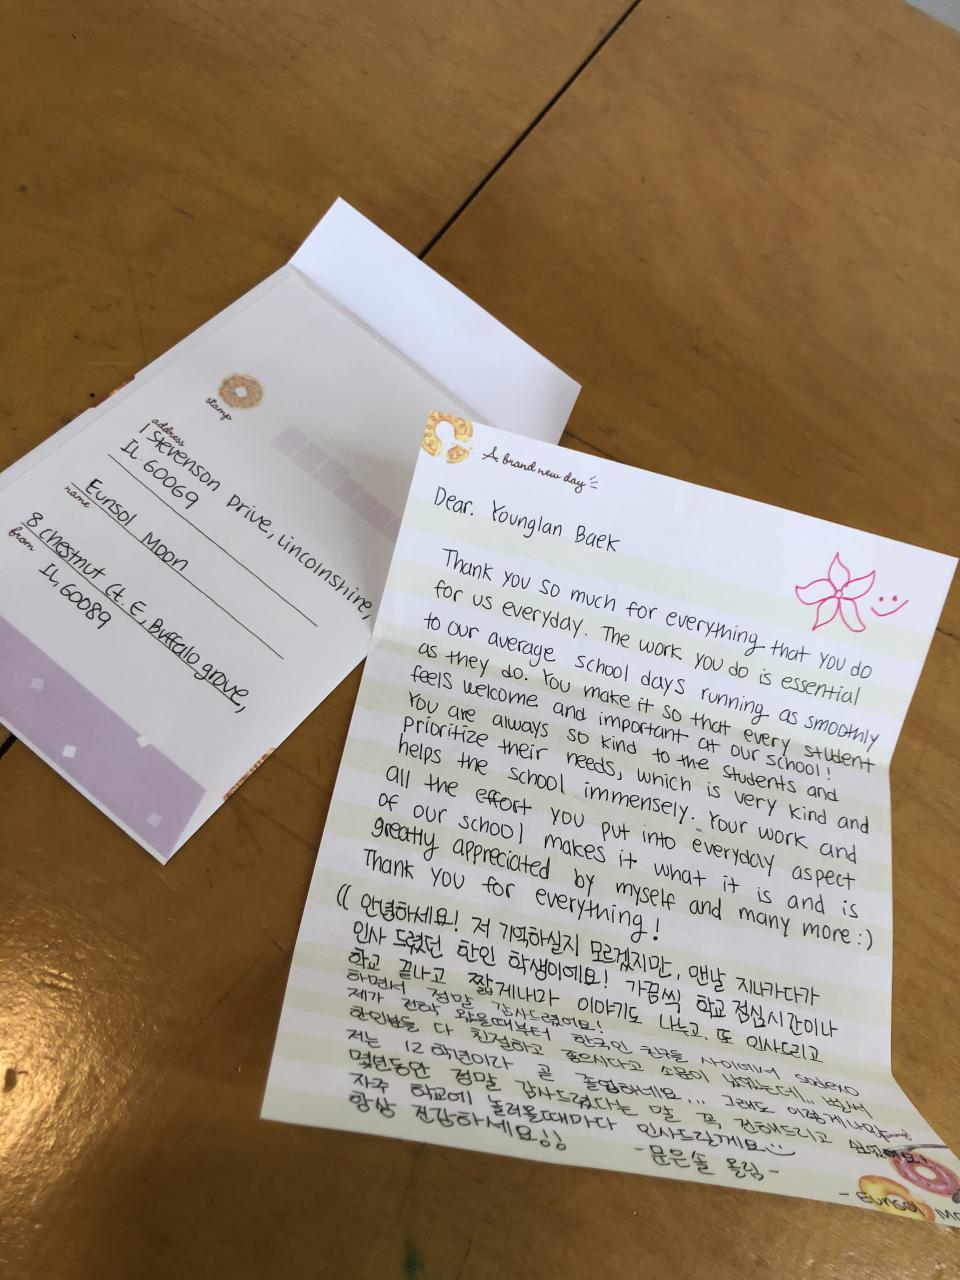 stamp
address
1 Stevenson Drive, Lincolnshire,
IL 60069
name
Eunsol Moon
from
8 Chestnut Ct. E, Buffalo grove,
IL, 60089
A brand new day
Dear. Younglan Baek
Thank you so much for everything that you do
for us everyday. The work you do is essential
to our average school days running as smoothly
as they do. You make it so that every student
feels welcome and important at our school!
You are always so kind to the students and
prioritize their needs, which is very kind and
helps the school immensely. Your work and
all the effort you put into everyday aspect
of our school makes it what it is and is
greatly appreciated by myself and many more :)
Thank you for everything!
(( 안녕하세요! 저 기억하실지 모르겠지만, 맨날 지나가다가
인사 드렸던 한인 학생이에요! 가끔씩 학교 점심시간이나
학교 끝나고 짧게나마 이야기도 나누고, 또 인사드리고
하면서 정말 감사드렸어요!
제가 전학 왔을때부터 한국인 친구들 사이에서 sodexo
한인분들 다 친절하고 좋으시다고 소문이 났었는데... 벌써
저는 12학년이라 곧 졸업하네요... 그래도 이렇게나마
몇년동안 정말 감사드렸다는 말 꼭 전해드리고 싶었어요!
자주 학교에 놀러올때마다 인사드릴게요
항상 건강하세요!!
- 문은솔 올림 -
- Eunsol